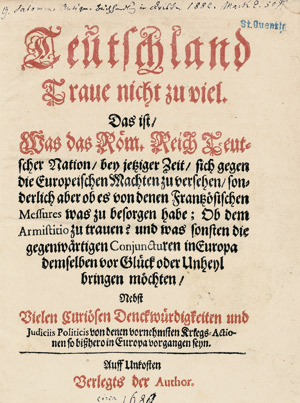 St. Quentin
Teutschland
Traue nicht zu viel.
Das ist/
Was das Röm. Reich Teut-
scher Nation/ bey jetziger Zeit/ sich gegen
die Europeischen Machten zu versehen/ son-
derlich aber ob es von denen Frantzösischen
Messures was zu besorgen habe; Ob dem
Armistitio zu trauen? und was sonsten die
gegenwärtigen Conjuncturen in Europa
demselben vor Glück oder Unheyl
bringen möchten/
Nebst
Vielen Curiösen Denckwürdigkeiten und
Judiciis Politicis von denen vornehmsten Kriegs-Actio-
nen so bißhero in Europa vorgangen seyn.
Auff Unkosten
Verlegts der Author.